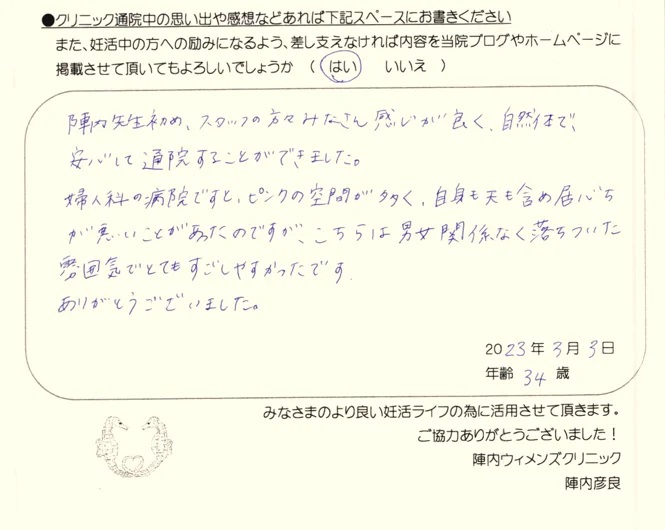 ●クリニック通院中の思い出や感想などあれば下記スペースにお書きください
また、妊活中の方への励みになるよう、差し支えなければ内容を当院ブログやホームページに
掲載させて頂いてもよろしいでしょうか （ はい　いいえ ）
陣内先生初め、スタッフの方々みなさん感じが良く、自然体で、
安心して通院することができました。
婦人科の病院ですと、ピンクの空間が多く、自身も夫も含め居心ち
が悪いことがあったのですが、こちらは男女関係なく落ちついた
雰囲気でとてもすごしやすかったです.
ありがとうございました。
2023年3月3日
年齢 34 歳
みなさまのより良い妊活ライフの為に活用させて頂きます。
ご協力ありがとうございました！
陣内ウィメンズクリニック
陣内彦良